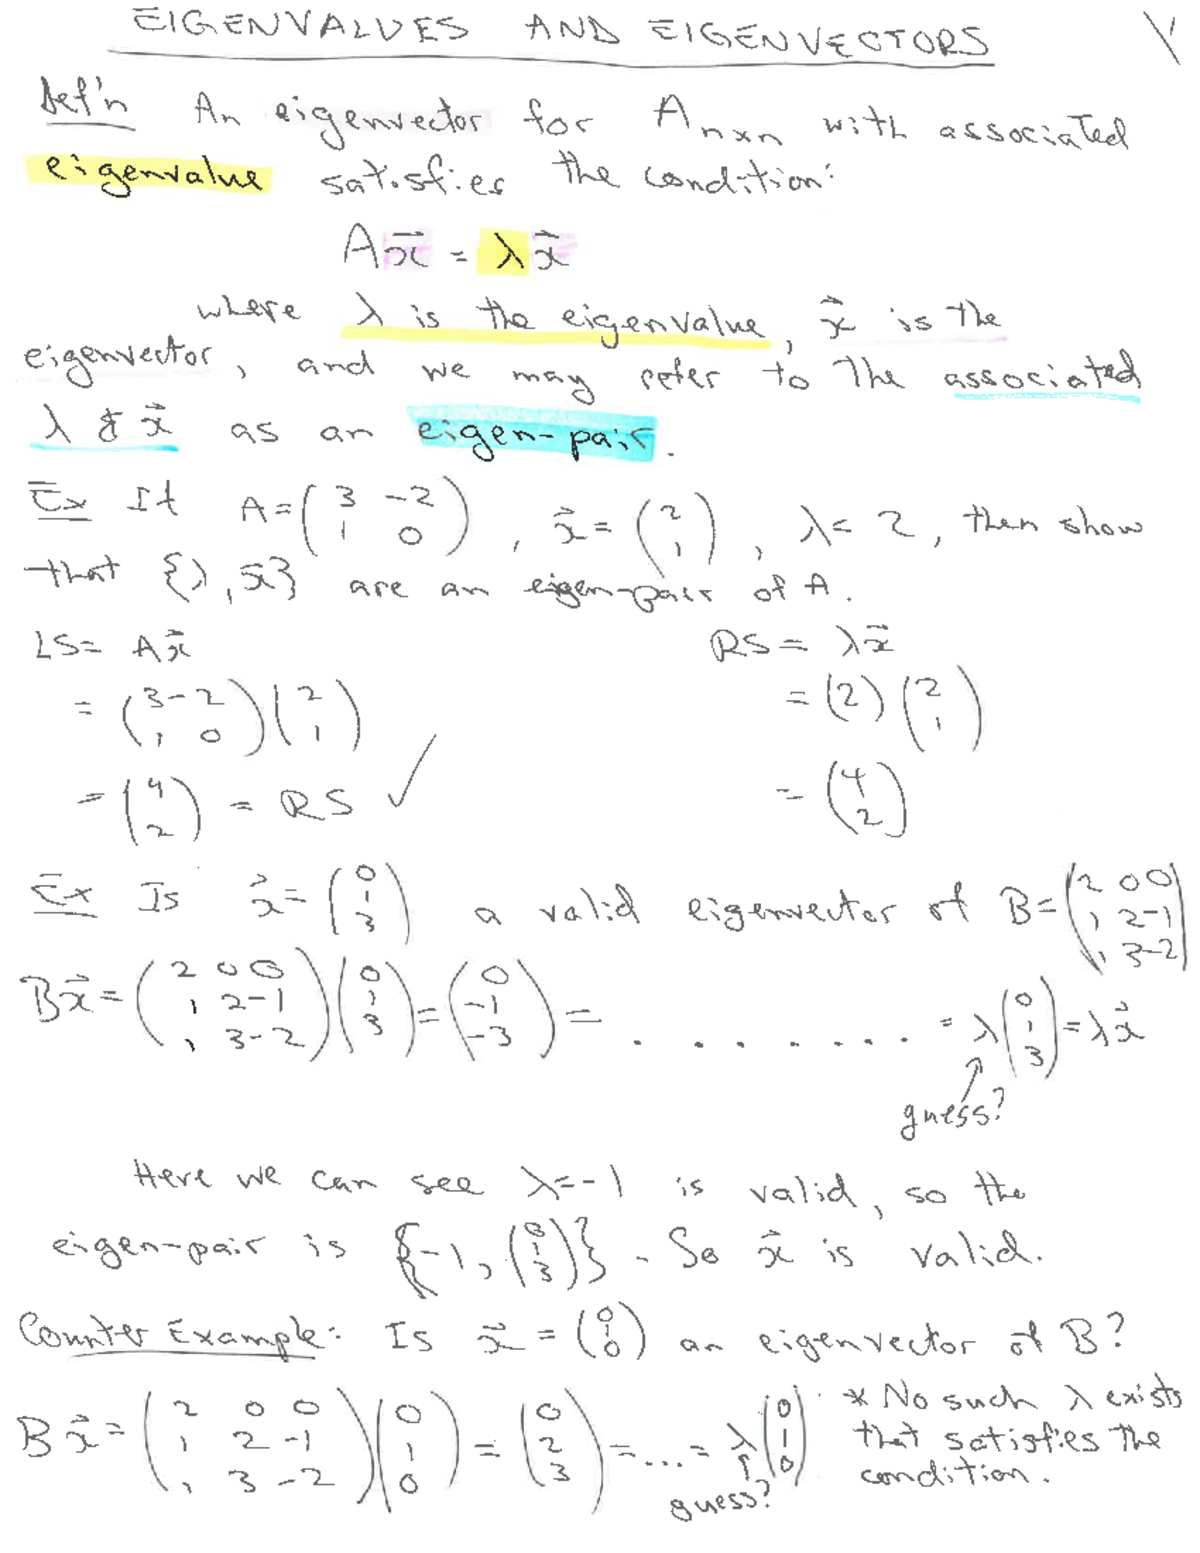 EIGENVALUES AND EIGENVECTORS 1/
Def'n An eigenvector for A_{nxn} with associated
eigenvalue satisfies the condition:
Ax⃗ = λx⃗
where λ is the eigenvalue, x⃗ is the
eigenvector, and we may refer to the associated
λ & x⃗ as an eigen-pair.
Ex If A = (3 -2; 1 0), x⃗ = (2; 1), λ = 2, then show
that {λ, x⃗} are an eigen-pair of A.
LS = Ax⃗ RS = λx⃗
= (3 -2; 1 0)(2; 1) = (2)(2; 1)
= (4; 2) = RS ✓ = (4; 2)
Ex Is x⃗ = (0; 1; 3) a valid eigenvector of B = (2 0 0; 1 2 -1; 1 3 -2)
Bx⃗ = (2 0 0; 1 2 -1; 1 3 -2)(0; 1; 3) = (0; -1; -3) = . . . . . . . = λ(0; 1; 3) = λx⃗
guess?
Here we can see λ = -1 is valid, so the
eigen-pair is {-1, (0; 1; 3)}. So x⃗ is valid.
Counter Example: Is x⃗ = (0; 1; 0) an eigenvector of B?
Bx⃗ = (2 0 0; 1 2 -1; 1 3 -2)(0; 1; 0) = (0; 2; 3) = ... = λ(0; 1; 0) * No such λ exists
that satisfies the
condition.
guess?